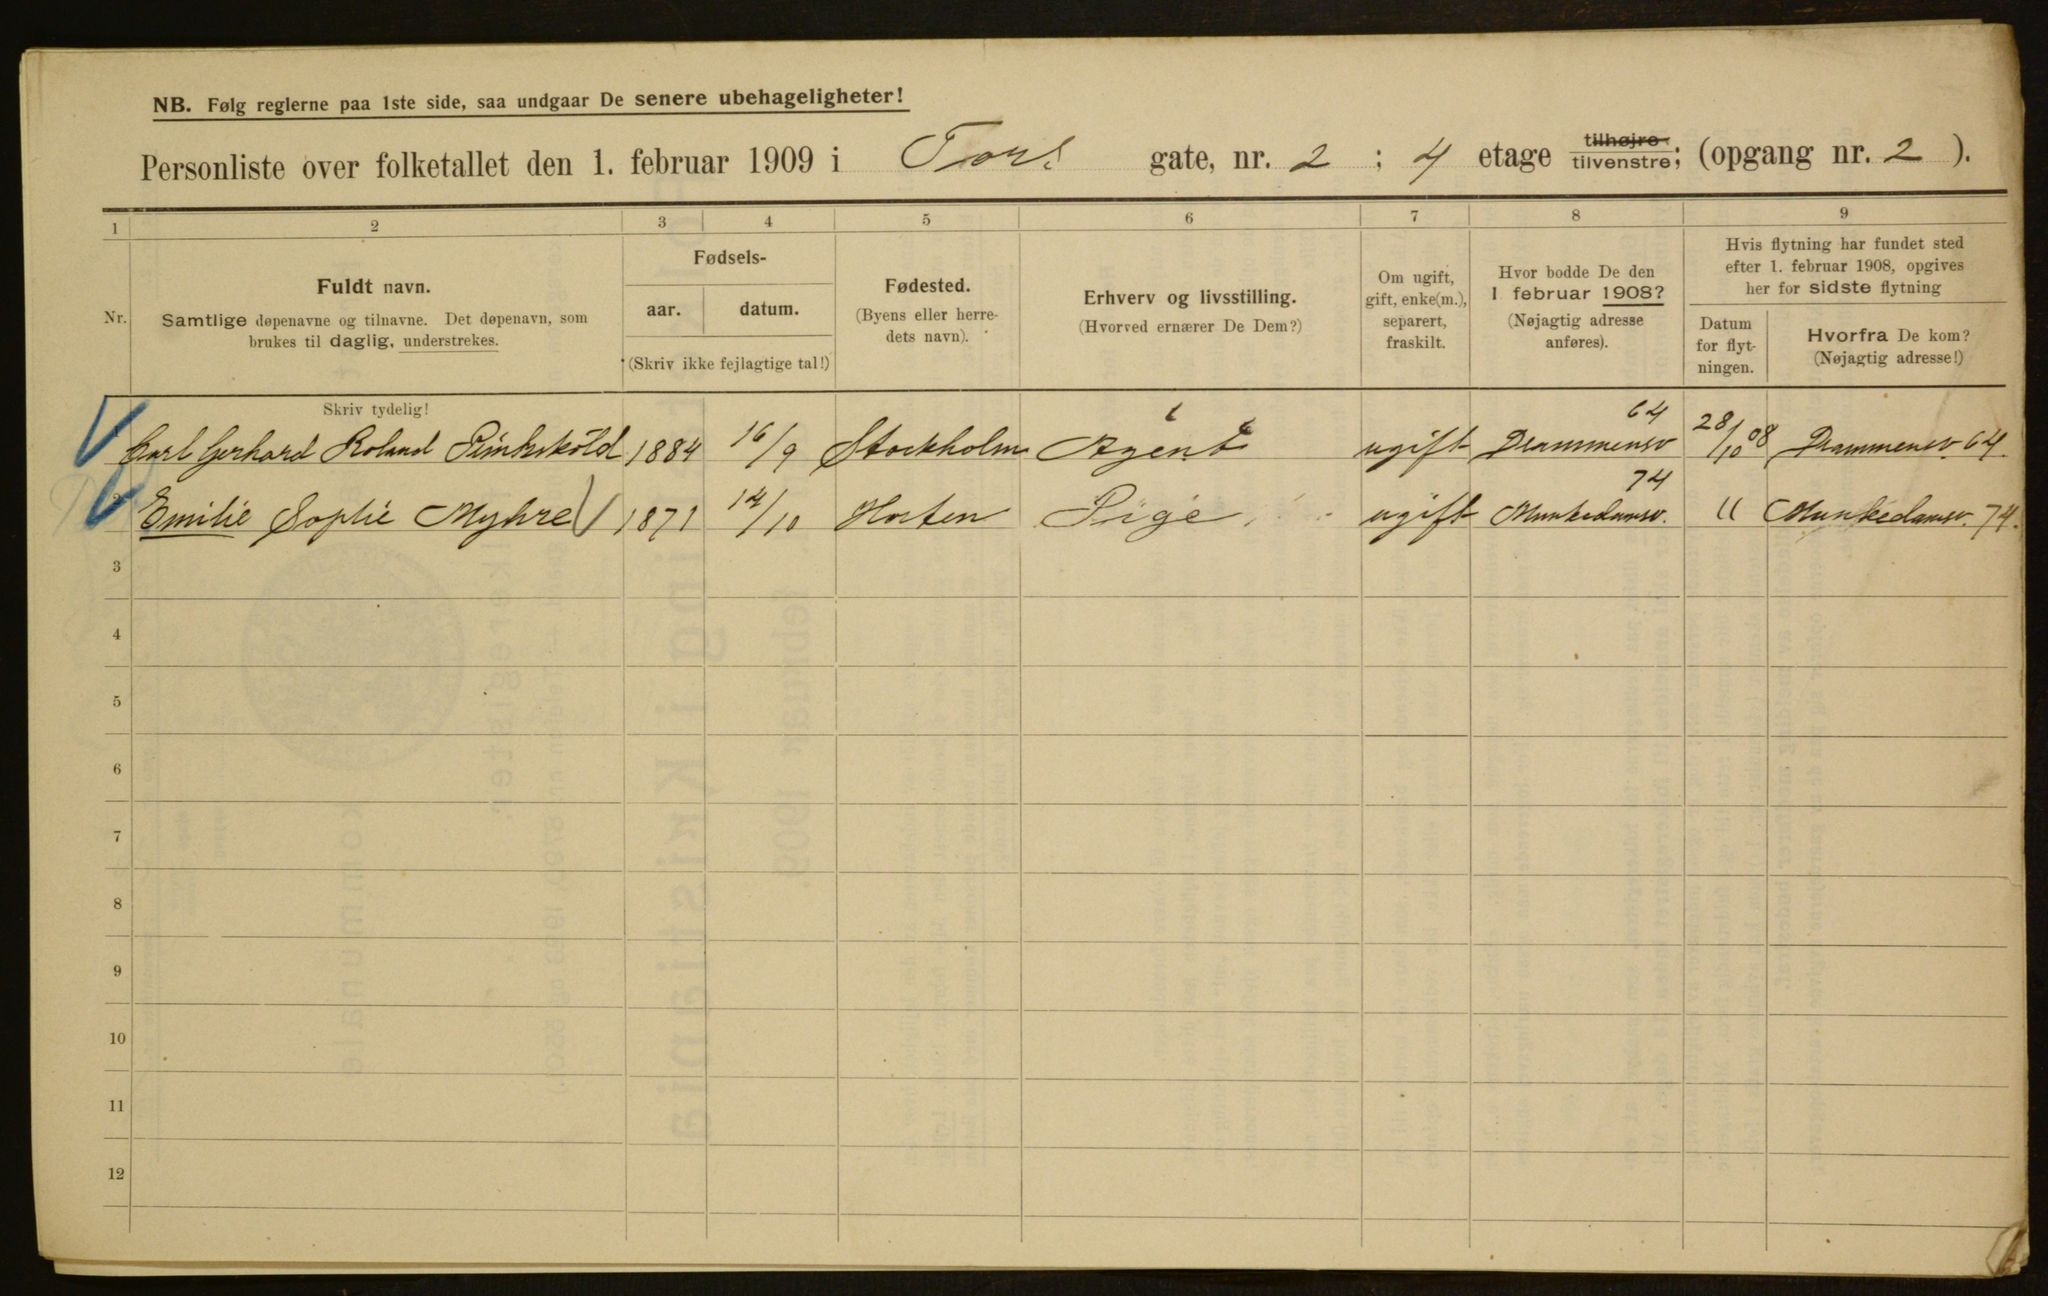 NB. Følg reglerne paa 1ste side, saa undgaar De senere ubehageligheter!
Personliste over folketallet den 1. februar 1909 i Tors gate, nr. 2 ; 4 etage tilhøjre tilvenstre; (opgang nr. 2 ).
1 2 3 4 5 6 7 8 9
Nr.
Fuldt navn.
Samtlige døpenavne og tilnavne. Det døpenavn, som
brukes til daglig, understrekes.
Fødsels-
aar. datum.
(Skriv ikke fejlagtige tal!)
Fødested.
(Byens eller herre-
dets navn).
Erhverv og livsstilling.
(Hvorved ernærer De Dem?)
Om ugift,
gift, enke(m.),
separert,
fraskilt.
Hvor bodde De den
1 februar 1908?
(Nøjagtig adresse
anføres).
Hvis flytning har fundet sted
efter 1. februar 1908, opgives
her for sidste flytning
Datum
for flyt-
ningen.
Hvorfra De kom?
(Nøjagtig adresse!)
Skriv tydelig!
Carl Gerhard Roland 1884 16/9 Stockholm Agent ugift Drammensv 64 28/10 08 Drammensv. 64.
2 Emilie Sophie Myhre 1871 14/10 Horten Pige ugift Munkedamsv. 74 " Munkedamsv. 74.
3
4
5
6
7
8
9
10
11
12